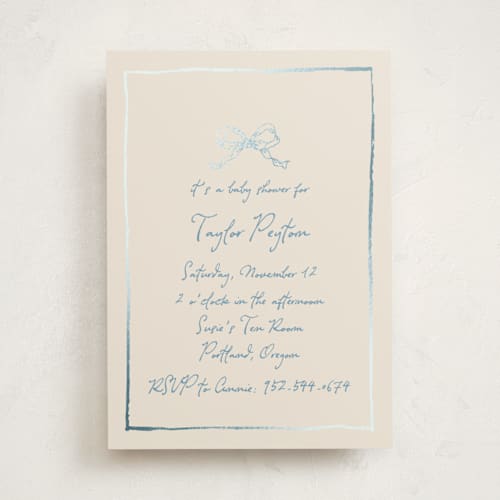 it's a baby shower for
Taylor Peyton
Saturday, November 12
2 o'clock in the afternoon
Susie's Tea Room
Portland, Oregon
RSVP to Connie: 952-544-0674